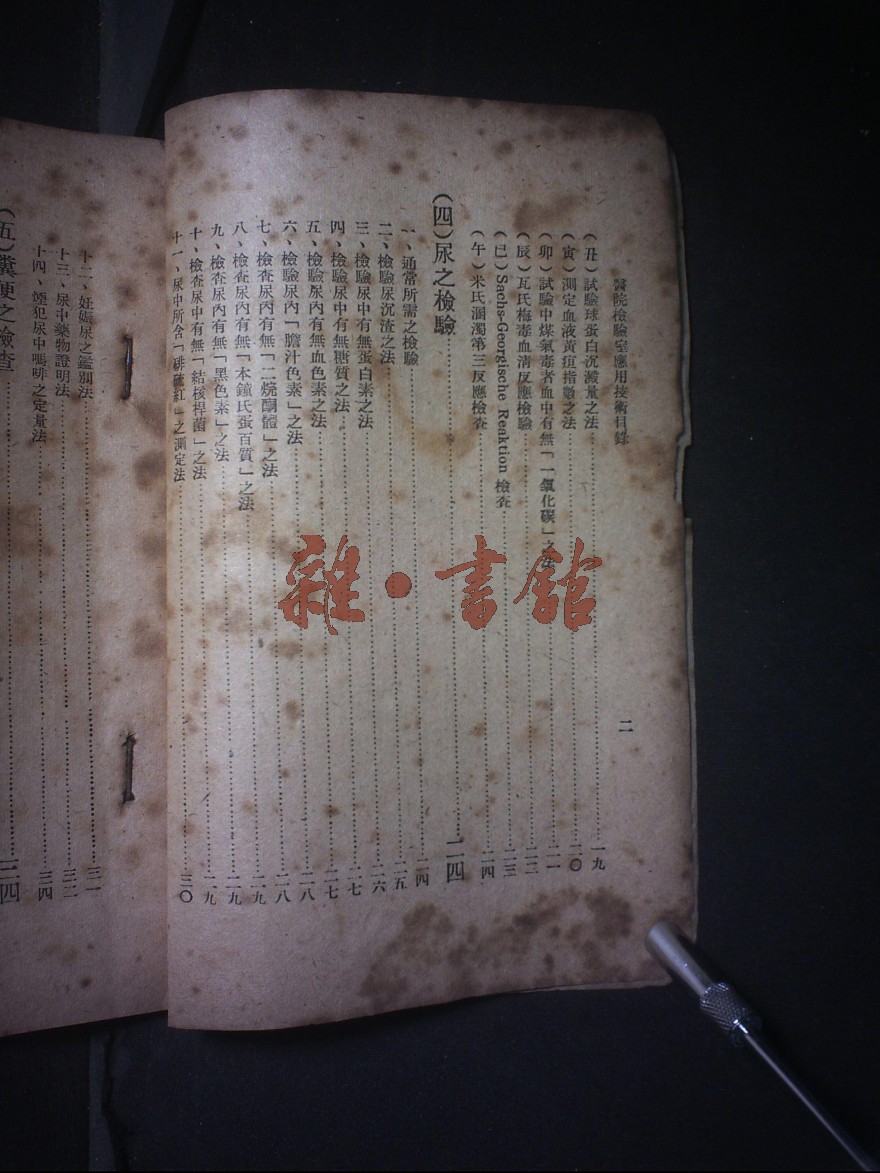 醫院檢驗室應用技術目錄
二
(丑)試驗球蛋白沉澱量之法 一九
(寅)測定血液黃疸指數之法 二〇
(卯)試驗中煤氣毒者血中有無「一氧化碳」之法 二一
(辰)瓦氏梅毒血淸反應檢驗 二三
(巳)Sachs-Georgische Reaktion 檢查 二三
(午)米氏溷濁第三反應檢查 二四
(四)尿之檢驗 二四
一、通常所需之檢驗 二四
二、檢驗尿沉渣之法 二五
三、檢驗尿中有無蛋白素之法 二六
四、檢驗尿中有無糖質之法 二七
五、檢驗尿內有無血色素之法 二七
六、檢驗尿內「膽汁色素」之法 二八
七、檢查尿內有無「二烷酮體」之法 二八
八、檢查尿內有無「本鐘氏蛋百質」之法 二九
九、檢查尿內有無「黑色素」之法 二九
十、檢查尿中有無「結核桿菌」之法 二九
十一、尿中所含「硫紅」之測定法 三〇
十二、妊娠尿之鑑別法 三一
十三、尿中藥物證明法 三二
十四、煙犯尿中嗎啡之定量法 三四
(五)糞便之檢查 三四
雜·書館